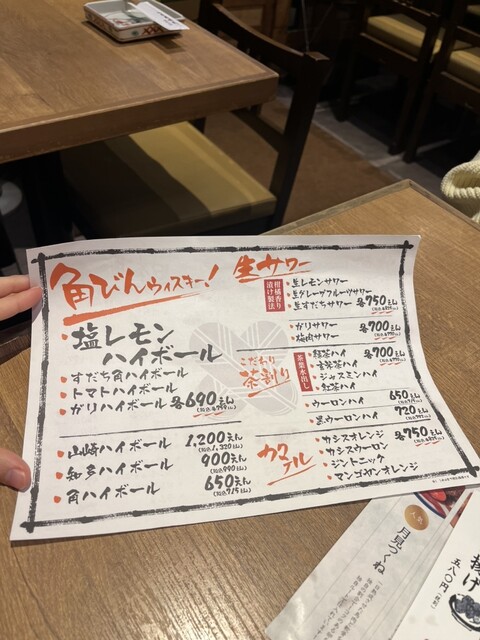 角びんウィスキー!
・塩レモン
ハイボール
・すだち角ハイボール
・トマトハイボール
・ガリハイボール 各690えん
・山崎ハイボール 1,200えん
(税込1,320えん)
・知多ハイボール 900えん
(税込990えん)
・角ハイボール 650えん
(税込715えん)
生サワー
柑橘香り
漬け製法
・生レモンサワー
・生グレープフルーツサワー
・生すだちサワー 各750えん
・ガリサワー
・梅肉サワー 各700えん
こだわり
茶割り
茶葉水出し
・緑茶ハイ
・玄米茶ハイ
・ジャスミンハイ
・紅茶ハイ
各700えん
・ウーロンハイ 650えん
・黒ウーロンハイ 720えん
カクテル
・カシスオレンジ
・カシスウーロン
・ジントニック
・マンゴヤンオレンジ
各750えん
月見つくね
揚げ
五八〇円